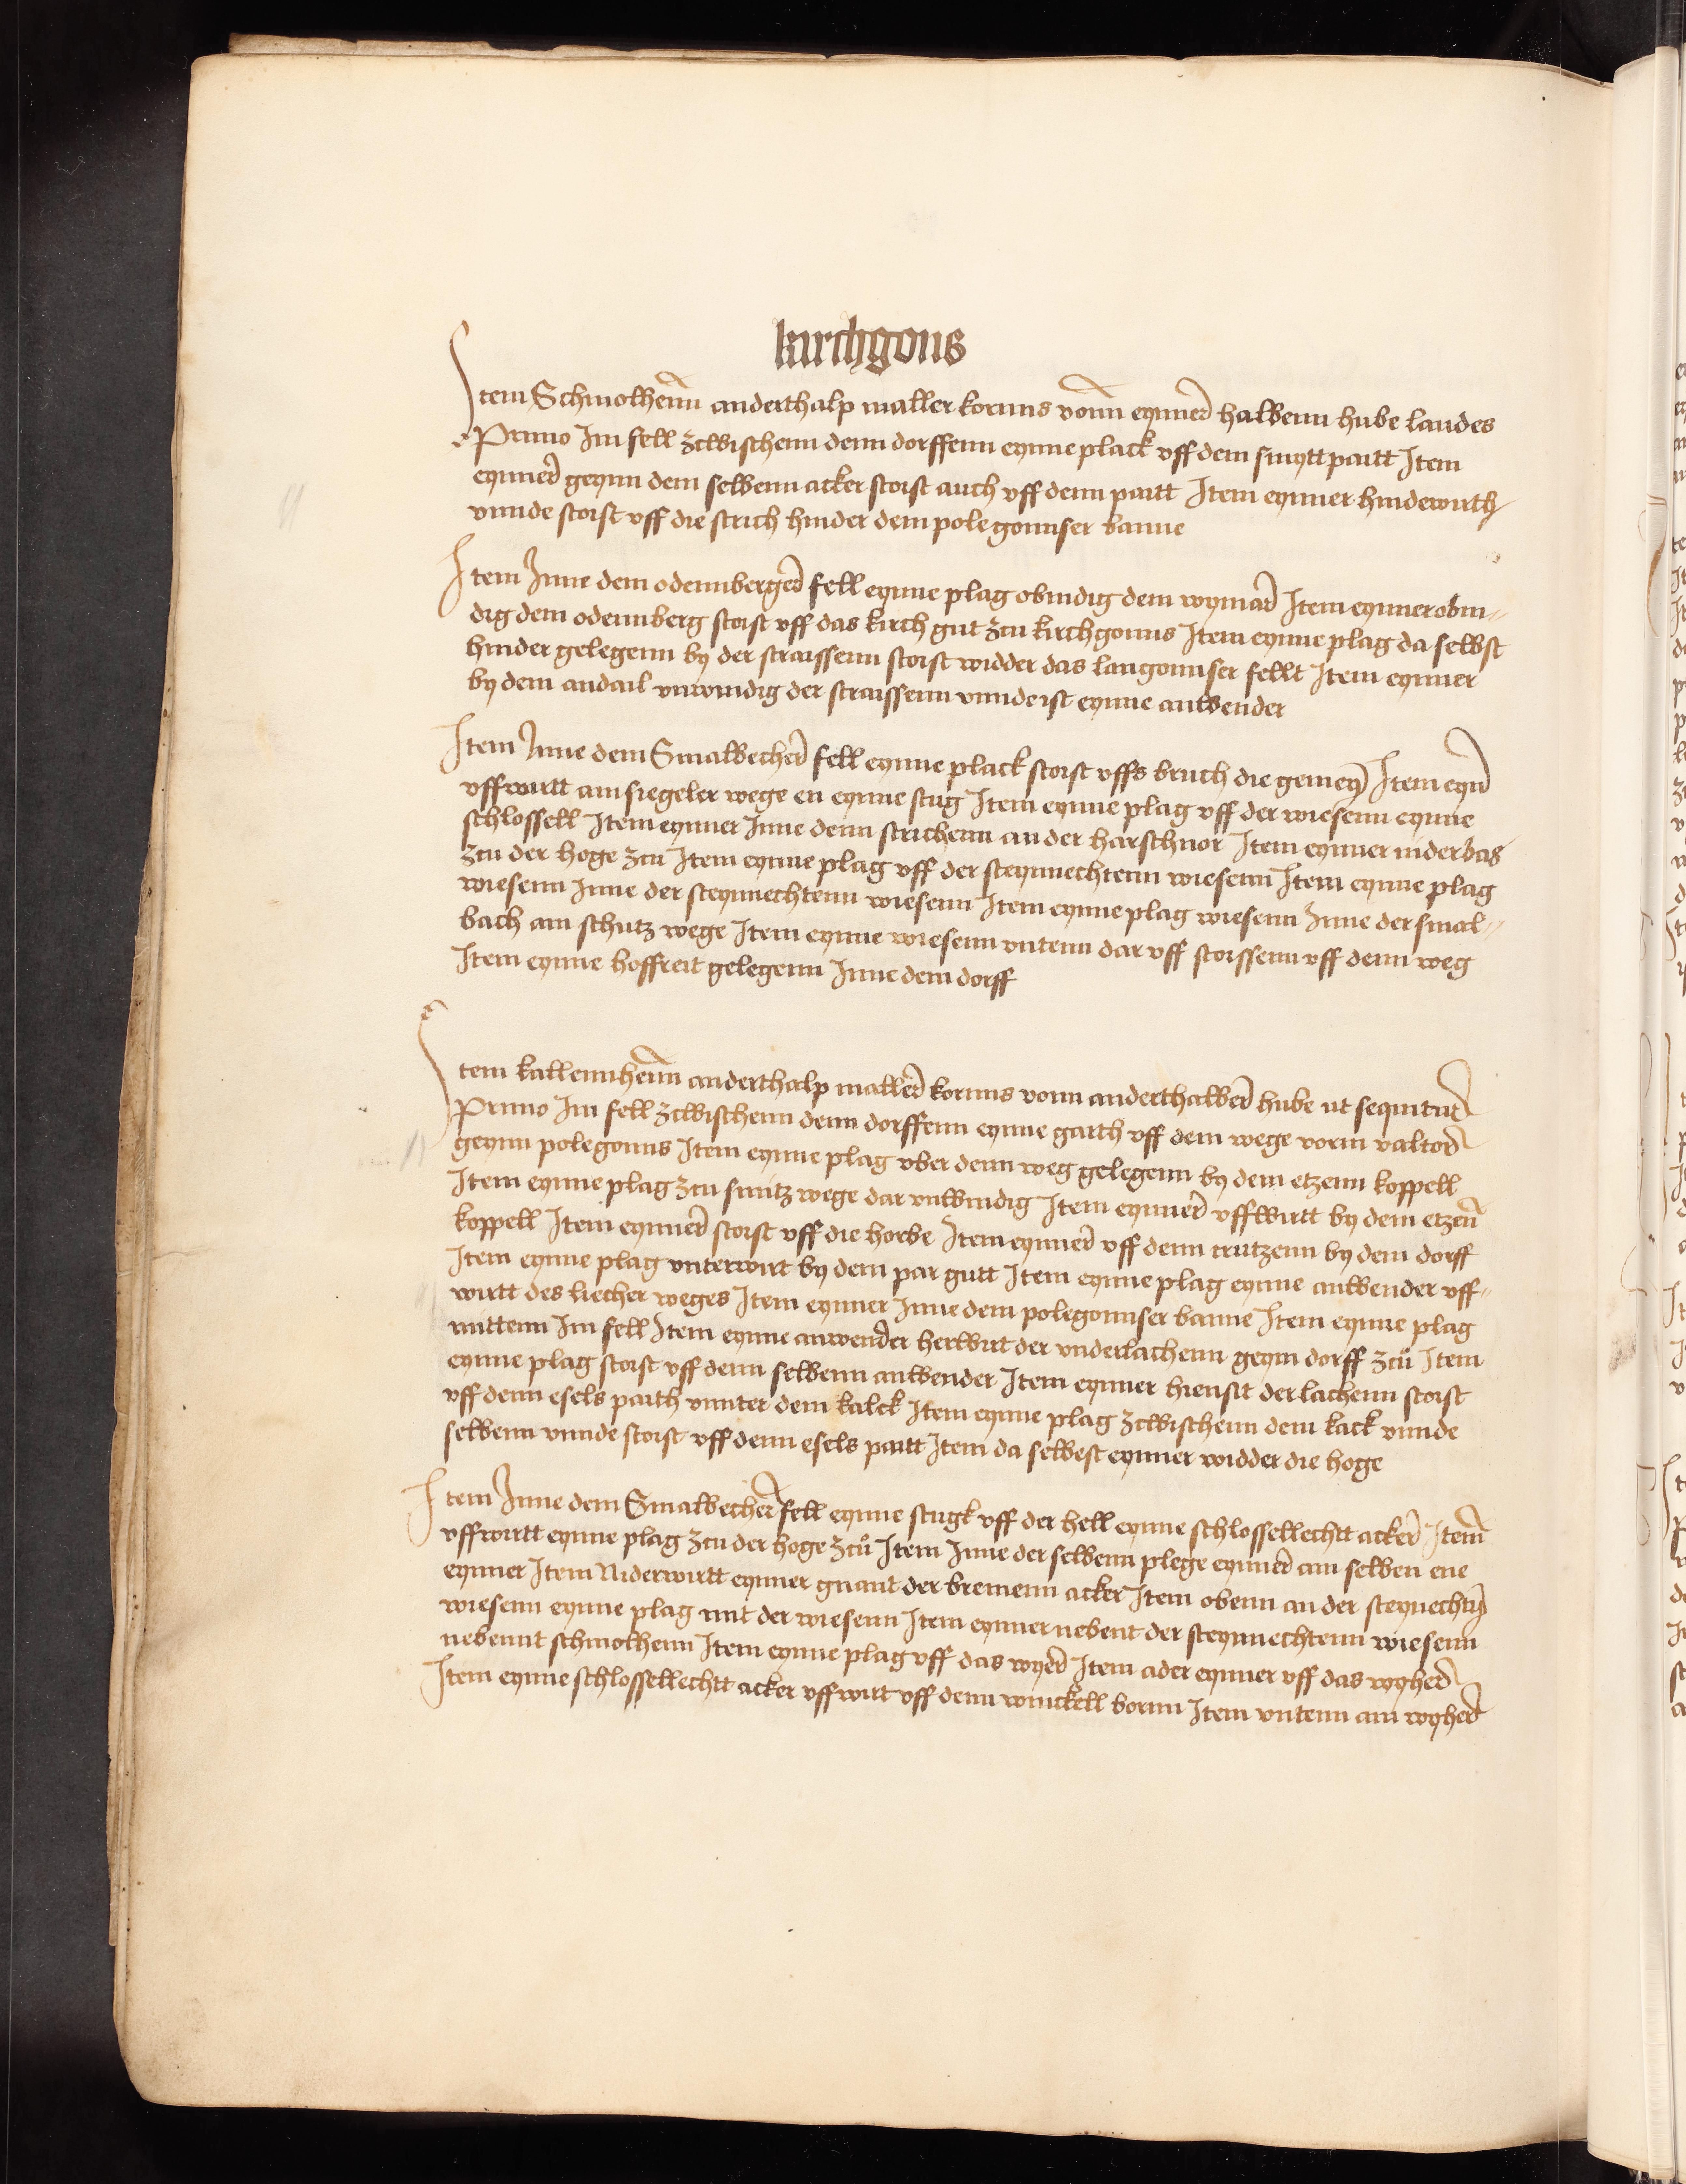 kirchgons
Item Schmolhenn anderthalp maller kornns vonn eynner halbenn hube landes
Primo Im fell zcwischenn denn dorffenn eynne plack vff dem smytt partt Item
eynner geynn dem selbenn acker stost auch vff denn partt Item eynner hinderwirth
vnnde stost vff die strich hinder dem polegonnser banne
Item Inne dem odennberger fell eynne plag obindig dem wymar Item eynner obin¬
dig dem odennberg stost vff das kirch gut zcu kirchgonns Item eynne plag da selbst
hinder gelegenn by der straissenn stost widder das langonnser fellt Item eynner
by dem andail vnwindig der straissenn vnnde ist eynne anwender
Item Inne dem Smalbecher fell eynne plack stost vffs bruch die gemeyn Item eyner
vffwirtt am siegeler wege en eynne stug Item eynne plag vff der wiesenn eynne
schlossell Item eynner Inne denn strichenn an der harschnor Item eynner niderbas
zcu der hoge zcu Item eynne plag vff der steynnechtenn wiesenn Item eynne plag
wiesenn Inne der steynnechtenn wiesenn Item eynne plag wiesenn Inne der smal¬
bach am schutz wege Item eynne wiesenn vntenn dar vff stoissenn vff denn weg
Item eynne hoffreit gelegenn Inne dem dorff
Item kallennhenn anderthalp maller kornns vonn anderthalber hube ut sequitur
Primo Im fell zcwischenn denn dorffenn eynne garth vff dem wege vorm valtor
geynn polegonns Item eynne plag vber denn weg gelegenn by dem etzenn koppell
Item eynne plag zcu smitz wege dar vnwindig Item eynner vffwirtt by dem etzenn
koppell Item eynner stost vff die horbe Item eynner vff denn trutzenn by dem dorff
Item eynne plag vnterwirt by dem par gutt Item eynne plag eynne anwender vff¬
wirtt des liecher weges Item eynner Inne dem polegonnser banne Item eynne plag
mittenn Im fell Item eynne anwender herwirt der vnderlachenn geyn dorff zcu Item
eynne plag stost vff denn selbenn anwender Item eynner hiensit der lachenn stost
vff denn esels parth vnnter dem kalck Item eynne plag zcwischenn dem kack vnnde
selbenn vnnde stost vff denn esels partt Item da selbest eynner widder die hoge
Item Inne dem Smalbecher fell eynne stugk vff der hell eynne schlossellechtt acker Item
vffwirtt eynne plag zcu der hoge zcu Item Inne der selbenn plege eynner am selben ene
eynner Item Niderwirtt eynner gnant der bremenn acker Item obenn an der steynechtyn
wiesenn eynne plag mit der wiesenn Item eynner nebent der steynnechtenn wiesenn
nebennt schmolhenn Item eynne plag vff das wyer Item ader eynner vff das wyher
Item eynne schlossellechtt acker vffwirt vff denn winckell bornn Item vntenn am wyher